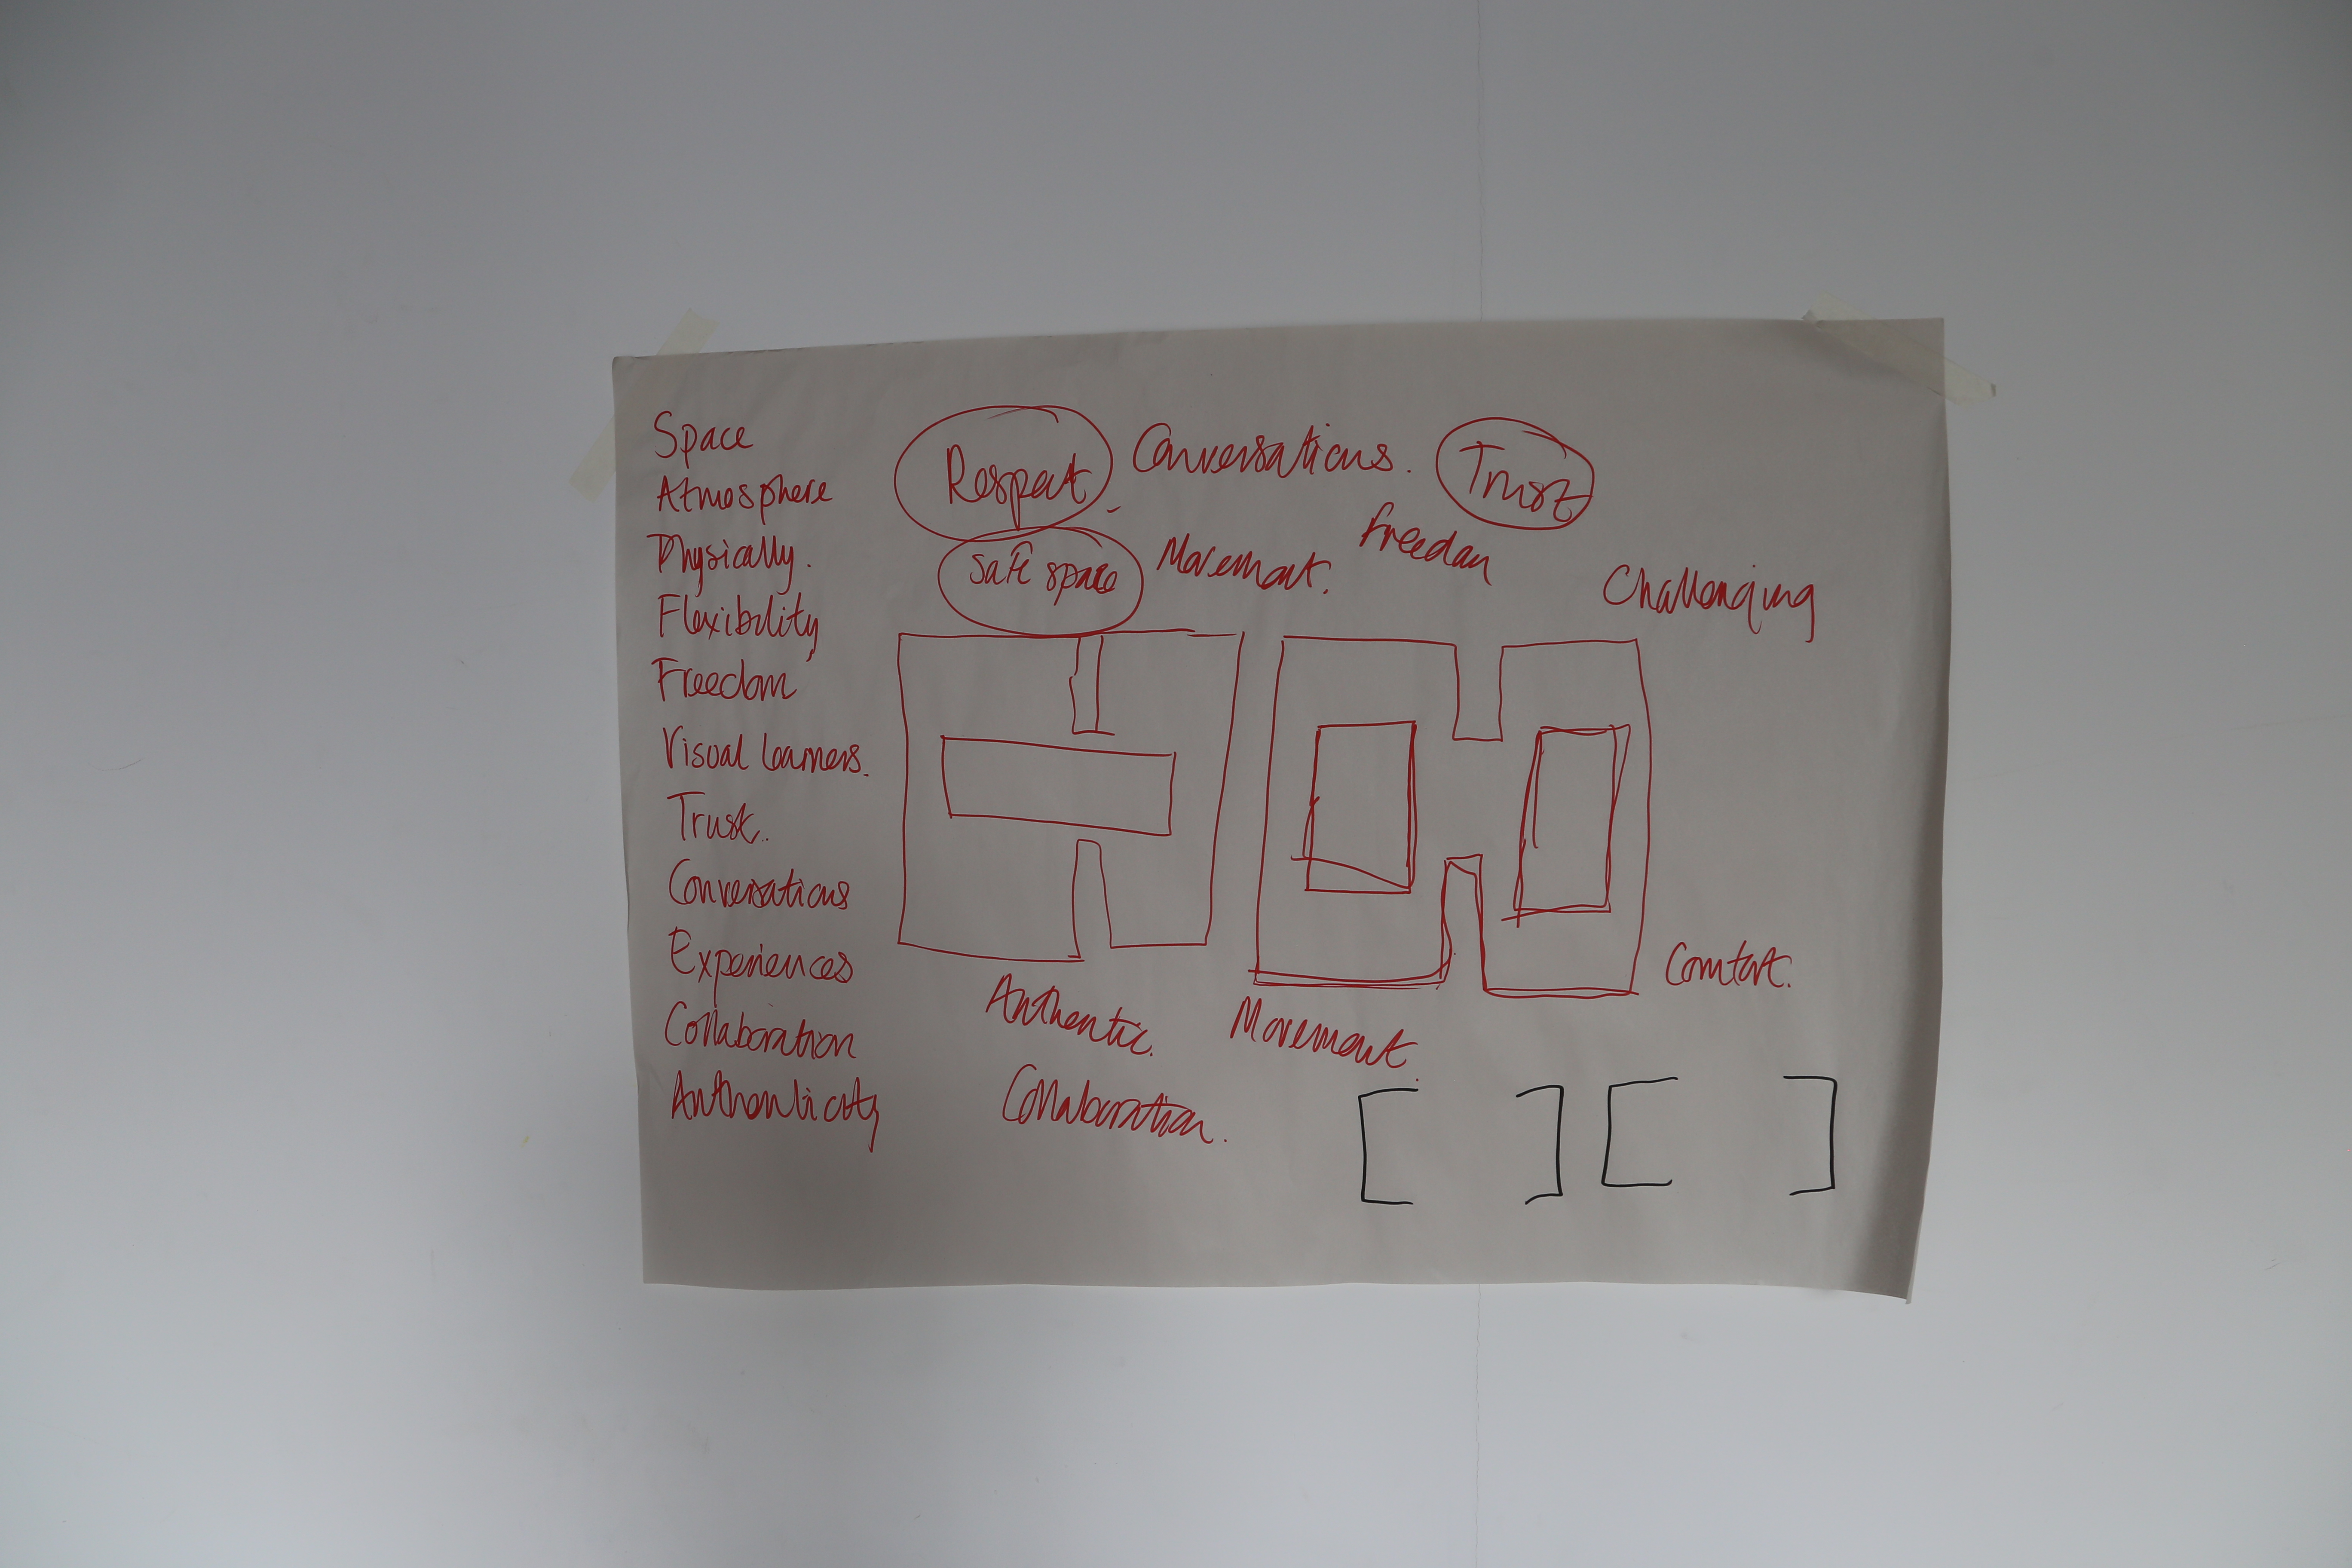 Space
Atmosphere
Physically.
Flexibility
Freedom
Visual learners.
Trust.
Conversations
Experiences
Collaboration
Authenticity
Respect.
Conversations.
Trust
Safe space
Movement.
Freedom
Challenging
Comfort.
Authentic.
Movement.
Collaboration.